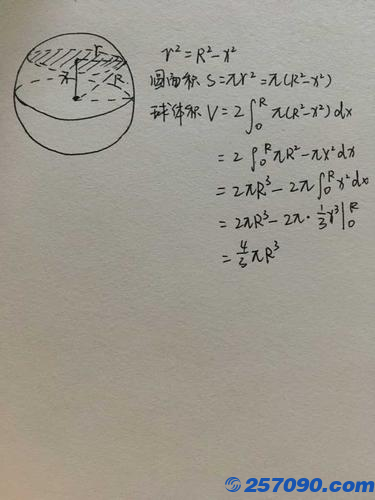 r
x
R
r² = R² - x²
圆面积 S = πr² = π(R² - x²)
球体积 V = 2∫₀ᴿ π(R² - x²) dx
= 2∫₀ᴿ πR² - πx² dx
= 2πR³ - 2π∫₀ᴿ x² dx
= 2πR³ - 2π · 1/3 x³ |₀ᴿ
= 4/3 πR³
257090.com